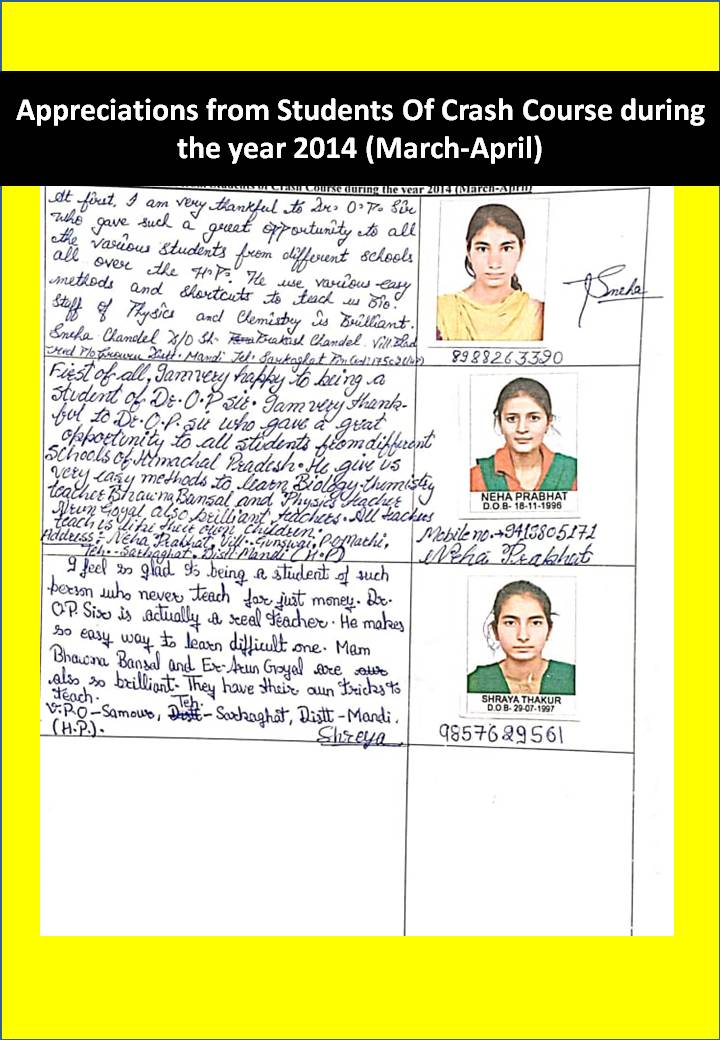 Appreciations from Students Of Crash Course during
the year 2014 (March-April)
from Students of Crash Course during the year 2014 (March-April)
At first, I am very thankful to Dr. O.P. Sir
who gave such a great opportunity to all
the various students from different schools
all over the H.P. He use various easy
methods and shortcuts to teach us Bio.
Staff of Physics and Chemistry is Brilliant.
Sneha Chandel D/O Sh. Prakash Chandel. Vill
Distt. Mandi Teh. Sarkaghat
Sneha
8988263390
First of all, I am very happy to being a
student of Dr. O.P sir. I am very thank-
ful to Dr. O.P. sir who gave a great
opportunity to all students from different
Schools of Himachal Pradesh. He give us
very easy methods to learn Biology. Chemistry
teacher Bhawna Bansal and Physics teacher
Arun Goyal also brilliant teachers. All teachers
teach us like their own children.
Address:- Neha Prabhat, Vill.-Gunswai, P.O Mathi,
Teh.-Sarkaghat, Distt Mandi (H.P)
NEHA PRABHAT
D.O.B- 16-11-1996
Mobile no.→9418805171
Neha Prabhat
I feel so glad to being a student of such
person who never teach for just money. Dr.
O.P Sir is actually a real teacher. He makes
so easy way to learn difficult one. Mam
Bhawna Bansal and Er-Arun Goyal are our
also so brilliant. They have their own tricks to
teach.
V.P.O-Samour, Distt Teh.-Sarkaghat, Distt-Mandi.
(H.P.).
Shreya
SHRAYA THAKUR
D.O.B- 29-07-1997
9857629561